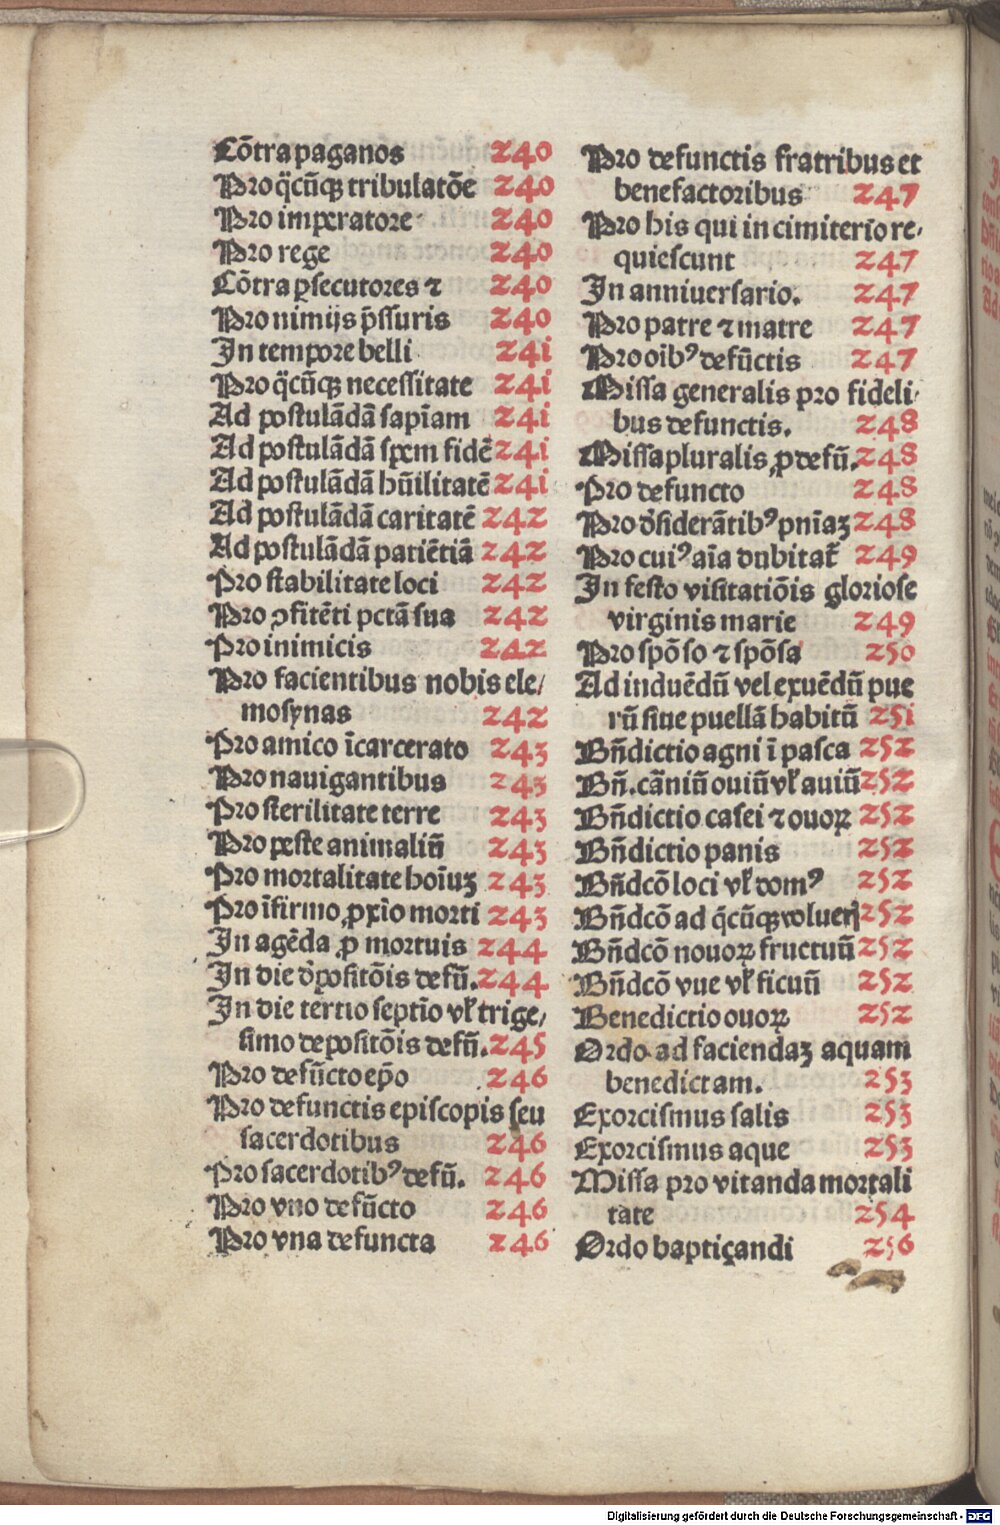 Cōtra paganos 240
Pro q̈cūqꝫ tribulatōe 240
Pro imperatore 240
Pro rege 240
Cōtra ꝑsecutores ⁊ 240
Pro nimijs p̄ssuris 240
In tempore belli 241
Pro q̈cūqꝫ necessitate 241
Ad postulādā sapīam 241
Ad postulādā spem fidē 241
Ad postulādā hūilitatē 241
Ad postulādā caritatē 242
Ad postulādā patiētiā 242
Pro stabilitate loci 242
Pro ꝯfitēti pctā sua 242
Pro inimicis 242
Pro facientibus nobis ele/
mosynas 242
Pro amico īcarcerato 243
Pro nauigantibus 243
Pro sterilitate terre 243
Pro peste animaliū 243
Pro mortalitate hoīuꝫ 243
Pro īfirmo ꝓxīo morti 243
In agēda ꝓ mortuis 244
In die d̓positōis defū. 244
In die tertio septīo vł trige/
simo depositōis defū. 245
Pro defūcto ep̄o 246
Pro defunctis episcopis seu
sacerdotibus 246
Pro sacerdotibꝰ defū. 246
Pro vno defūcto 246
Pro vna defuncta 246
Pro defunctis fratribus et
benefactoribus 247
Pro his qui in cimiterio re-
quiescunt 247
In anniuersario. 247
Pro patre ⁊ matre 247
Pro oībꝰ defūctis 247
Missa generalis pro fideli-
bus defunctis. 248
Missa pluralis ꝓ defū. 248
Pro defuncto 248
Pro d̓siderātibꝰ pnīaꝫ 248
Pro cuiꝰ aīa dubitat̄ 249
In festo visitatiōis gloriose
virginis marie 249
Pro spōso ⁊ spōsa 250
Ad induēdū vel exuēdū pue
rū siue puellā habitū 251
Bn̄dictio agni ī pasca 252
Bn̄.cārniū ouiū vł auiū 252
Bn̄dictio casei ⁊ ouoꝝ 252
Bn̄dictio panis 252
Bn̄dcō loci vł domꝰ 252
Bn̄dcō ad q̈cūqꝫ volueř 252
Bn̄dcō nouoꝝ fructuū 252
Bn̄dcō vue vł ficuū 252
Benedictio ouoꝝ 252
Ordo ad faciendaꝫ aquam
benedictam. 253
Exorcismus salis 253
Exorcismus aque 253
Missa pro vitanda mortali
tate 254
Ordo baptiçandi 256
Digitalisierung gefördert durch die Deutsche Forschungsgemeinschaft - DFG